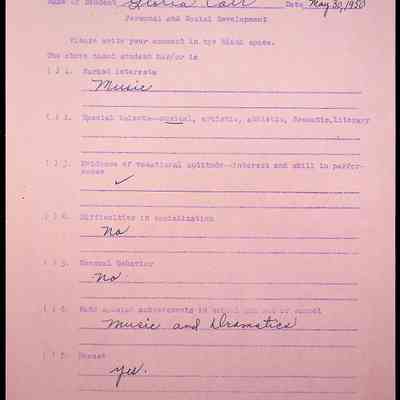 Name of Student Gloria Carr Date May 30, 1950
Personal and Social Development
Please write your comment in the blank space.
The above named student has/or is
( ) 1. Marked interests
Music
( ) 2. Special talents--musical, artistic, athletic, dramatic, literary
( ) 3. Evidence of vocational aptitude--interest and skill in perfor-
mance
✓
( ) 4. Difficulties in socialization
No
( ) 5. Unusual Behavior
No.
( ) 6. Made special achievements in school and out of school
Music and Dramatics
( ) 7. Honest
yes.